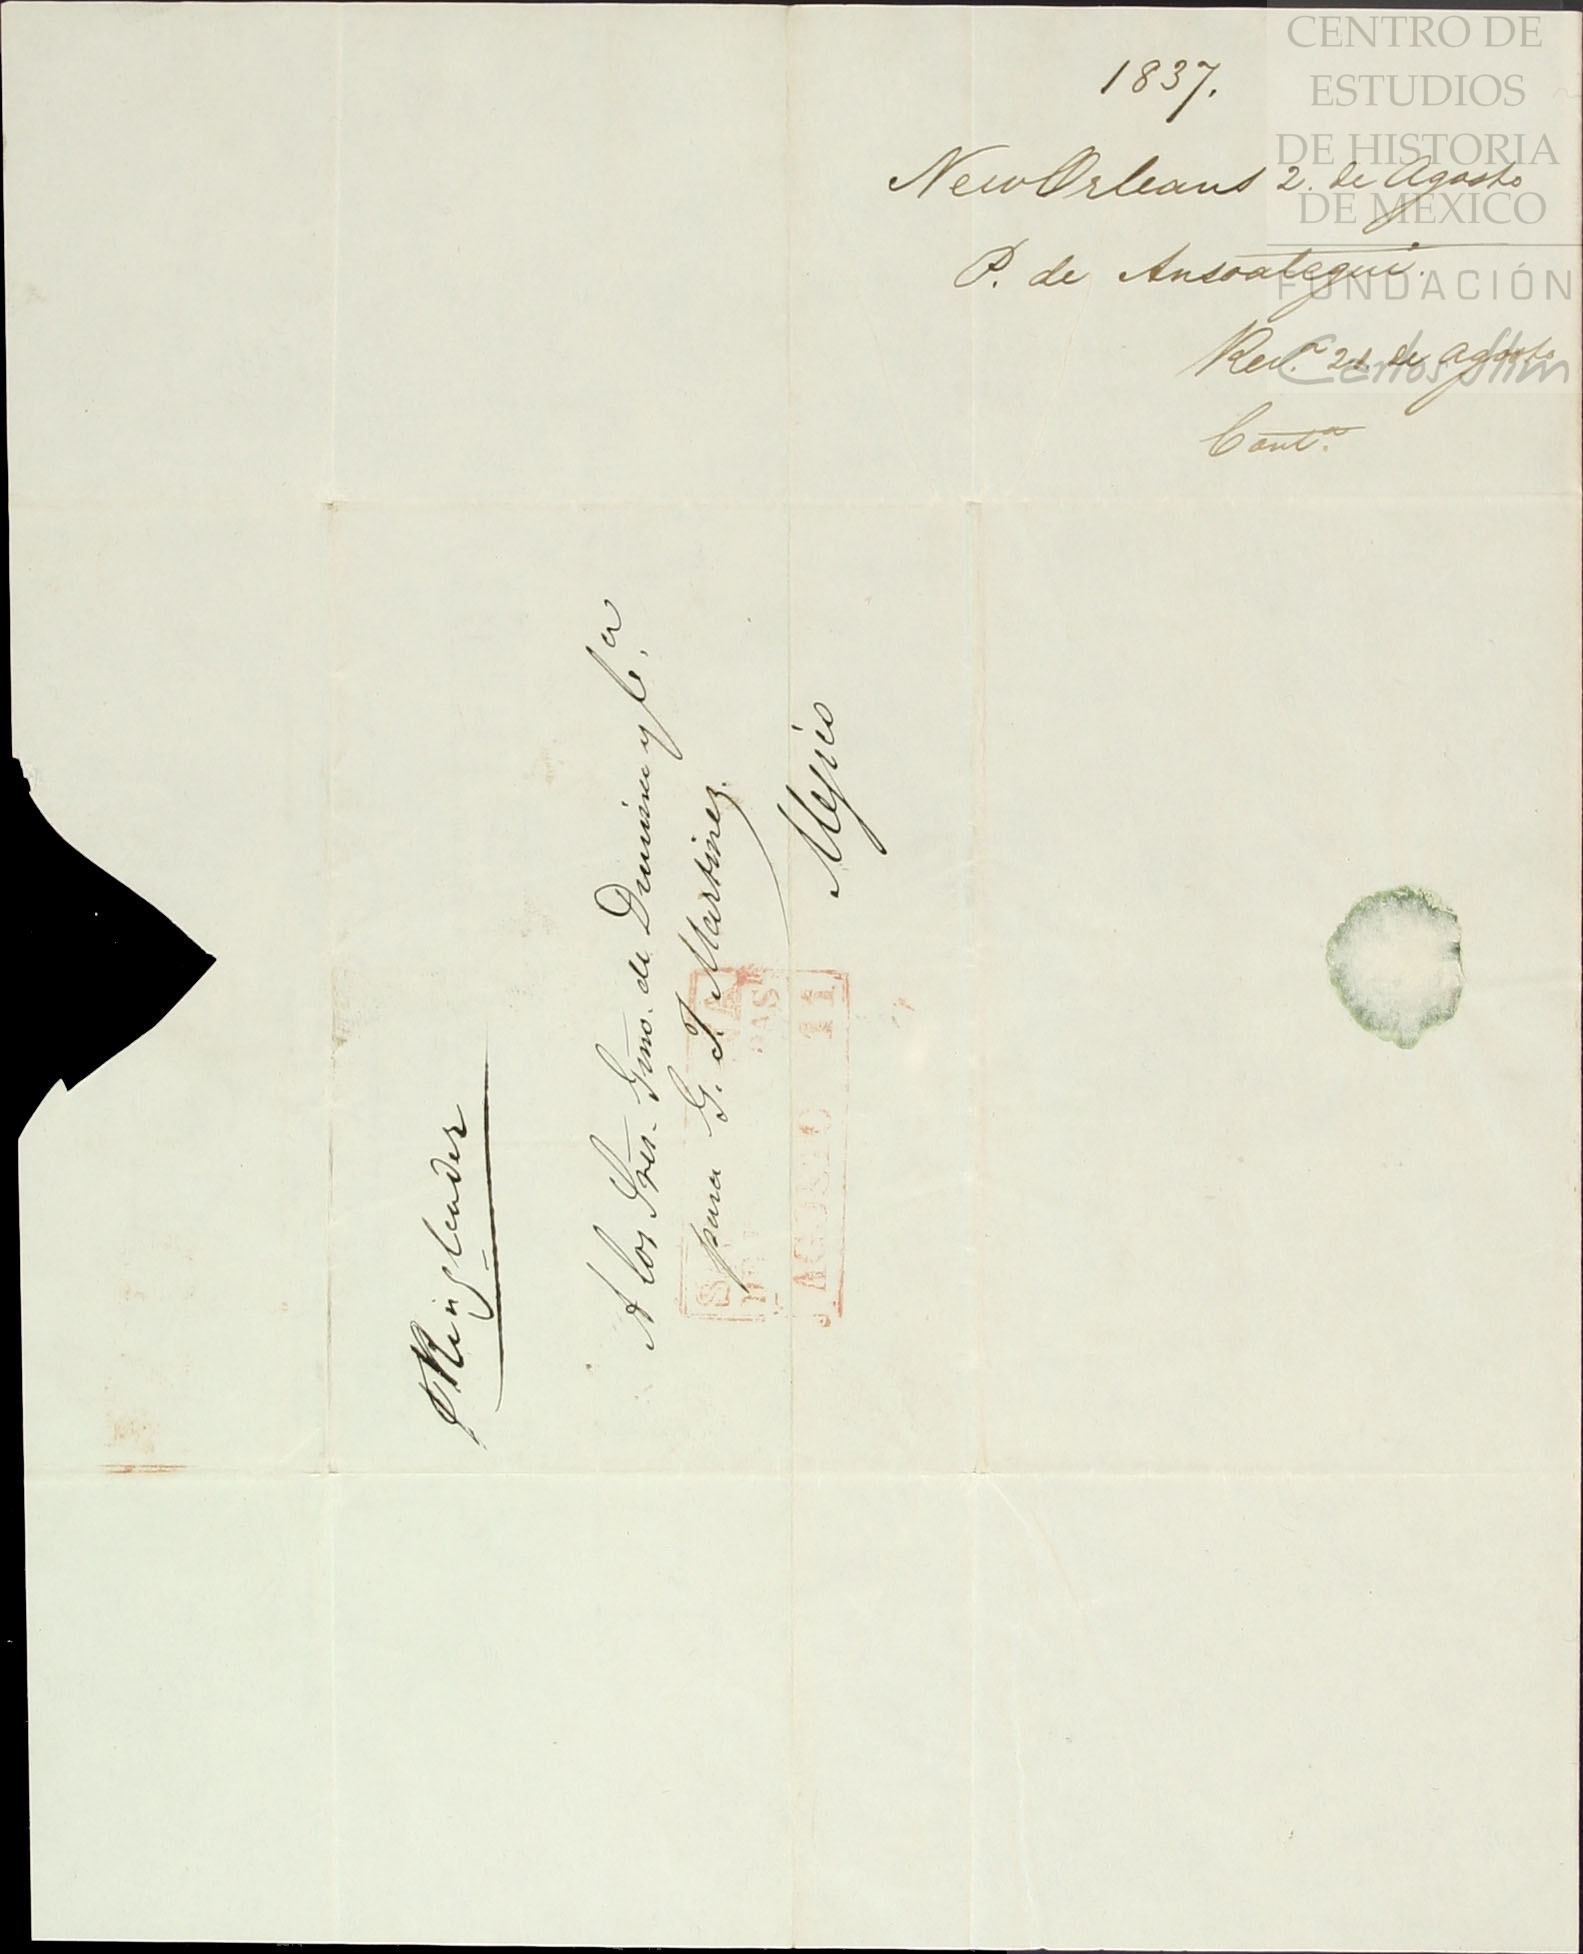 CENTRO DE
ESTUDIOS
DE HISTORIA
DE MEXICO
FUNDACIÓN
Carlos Slim
1837.
New Orleans 2. de Agosto
P. de Ansoategui.
Rev.ª 21. de Agosto
Cont.ⁿ
pr Ringleader
A los Sres. Gmo. de Drusina y C.ª
para G. J. Martinez.
Mejico
AGOSTO 11